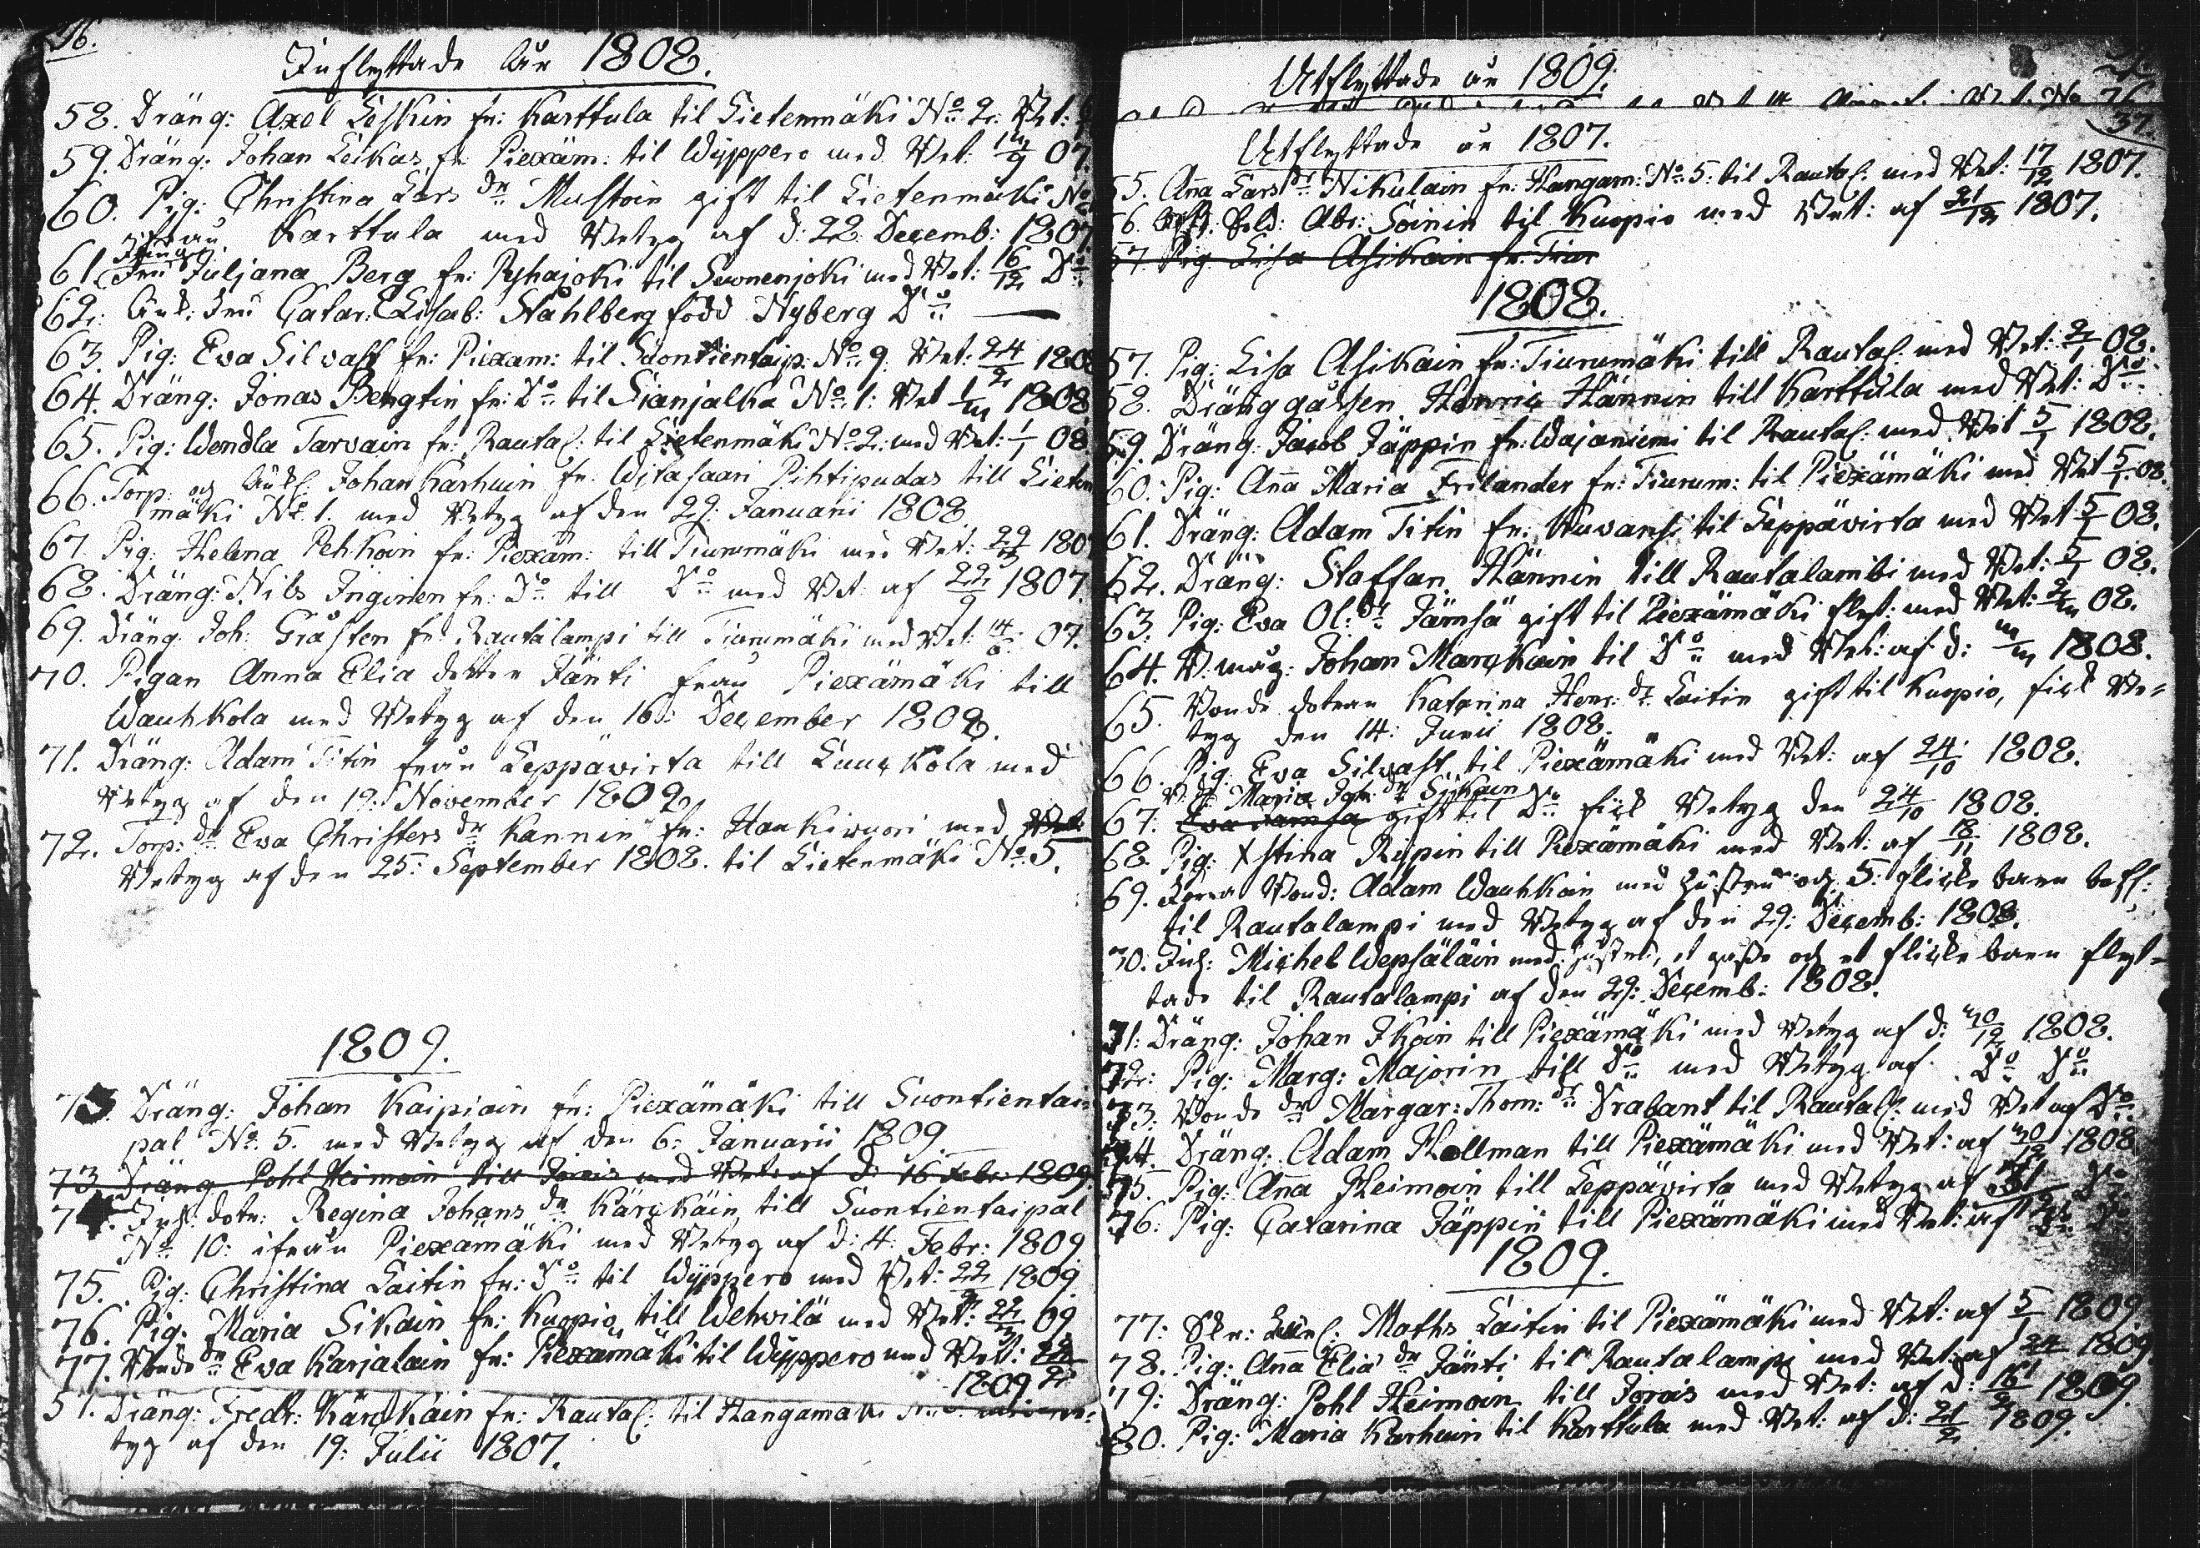 36.
Inflyttade År 1808.
58. Dräng: Axel Leskin fr: Karttula til Lietenmäki No 2. Bet:
59. Dräng: Johan Leikas fr: Piexäm: til Wyppero med Bet: 07.
60. Pig: Christina Lars dr Mustoin gift til Lietenmäki No
ifrån Karttula med Betyg af d: 22 Decemb: 1807.
61. Fru Juljana Berg fr: Pyhajoki til Suonenjoki med Bet: 16/12 Do
62. Änk: Fru Catar: Elisab: Ståhlberg född Nyberg Do —
63. Pig: Eva Silvast fr: Piexäm: til Suontientaip: No 9. Bet: 24/2 1808
64. Dräng: Jonas Bengtin fr: Do til Sianjalka No 1: Bet 1808
65. Pig: Wendla Tarvain fr: Rautal: til Lietenmäki No 2: med Bet: 1/1 08.
66. Torp: och Johan Karhuin fr: Witasaari Pihtipudas till Lieten
mäki No 1. med Betyg af den 29: Januarii 1808
67. Pig: Helena Pehkoin fr: Piexäm: till Tiurumäki med Bet: 180
68. Dräng: Nils Inginen fr: Do till Do med Bet: af 22/9 1807.
69. Dräng: Joh: Gråsten fr: Rautalampi till Tiurumäki med Bet: 07.
70. Pigan Anna Elia dotter Jänti från Piexämäki till
Wauhkola med Betyg af den 16: December 1808.
71. Dräng: Adam Titin från Leppävirta till Kuukola med
Betyg af den 19: November 1808
72. Torp: dr Eva Christers dr Kannin fr: Haukivuori med Bet
Betyg af den 25: September 1808. til Lietenmäki No 5.
1809.
73. Dräng: Johan Kaipiain fr: Piexämäki till Suontientai-
pal No 5. med Betyg af den 6: Januarii 1809.
73. Dräng Pohl Heimoin till Jorois med Bet: af d: 16 Febr: 1809.
74. Inh: dotr: Regina Johans dr Kärckäin till Suontientaipal
No 10: ifrån Piexämäki med Betyg af d: 4. Febr: 1809
75. Pig: Christina Laitin fr: Do til Wyppero med Bet: 1809
76. Pig: Maria Sikain fr: Kuopio till Wehvilä med Bet: 09
77. Bonde dr Eva Karjalain fr: Piexämäki til Wyppero med Bet:
1809
57. Dräng: Fredr: Kärckäin fr: Rautal: til Hangamäki
tyg af den 19: Julii 1807.
Utflyttade år 1809.
37.
Utflyttade år 1807.
55. Anna Lars dr Nikulain fr: Hangam: No 5: til Rautal: med Bet: 17/12 1807.
56. Sold: Abr: Soinin til Kuopio med Bet: af 21/12 1807.
57. Pig: Lisa Asikain fr: Tiur
1808.
57. Pig: Lisa Asikain fr: Tiurumäki till Rautal: med Bet: 2/1 08.
58. Dränggåssen Henric Hännin till Karttula med Bet: Do
59. Dräng: Jacob Jäppin fr: Wajaniemi til Rautal: med Bet 5/1 1808.
60. Pig: Anna Maria Frilander fr: Tiurum: til Piexämäki med Bet 5/1 08.
61. Dräng: Adam Titin fr: Kuvansi til Leppävirta med Bet 5/1 08.
62. Dräng: Staffan Hännin till Rautalambi med Bet: 5/1 08.
63. Pig: Eva Ol: dr Jämsä gift til Piexämäki flyt: med Bet: 08.
64. Johan Marckain til Do med Bet: af d: 1808.
65. Bonde dotran Katarina Henr: dr Laitin gift til Kuopio, fick Be=
tyg den 14: Junii 1808.
66. Pig: Eva Silvast til Piexämäki med Bet: af 24/10 1808.
Maria Joh: dr Sikain
67. Eva Jämsä gift til Do fick Betyg den 24/10 1808.
68. Pig: Xstina Rypin till Piexämäki med Bet: af 18/11 1808.
69. Bond: Adam Wauhkoin med hustru och 5: flicke barn
til Rautalampi med Betyg af den 29: Decemb: 1808.
70. Inh: Michel Wepsäläin med hustru, et gosse och et flicke barn flyt=
tade til Rautalampi af den 29: Decemb: 1808.
71: Dräng: Johan Ikoin till Piexämäki med Betyg af d: 30/12 1808.
72: Pig: Marg: Majorin till Do med Betyg af Do Do
73: Bonde dr Margar: Thom: dr Drabant til Rautal: med Bet af Do
74. Dräng: Adam Hollman till Piexämäki med Bet: af 30/12 1808
75. Pig: Anna Heimoin till Leppävirta med Betyg af Do
76: Pig: Catarina Jäppin till Piexämäki med Bet: af
1809.
77: Maths Laitin til Piexämäki med Bet: af 5/1 1809
78. Pig: Anna Elia dr Jänti til Rautalampi med Bet: af 24 1809
79: Dräng: Pohl Heimoin till Jorois med Bet: af d: 16/2 1809.
80. Pig: Maria Karhuin til Karttula med Bet: af d: 21/2 1809.